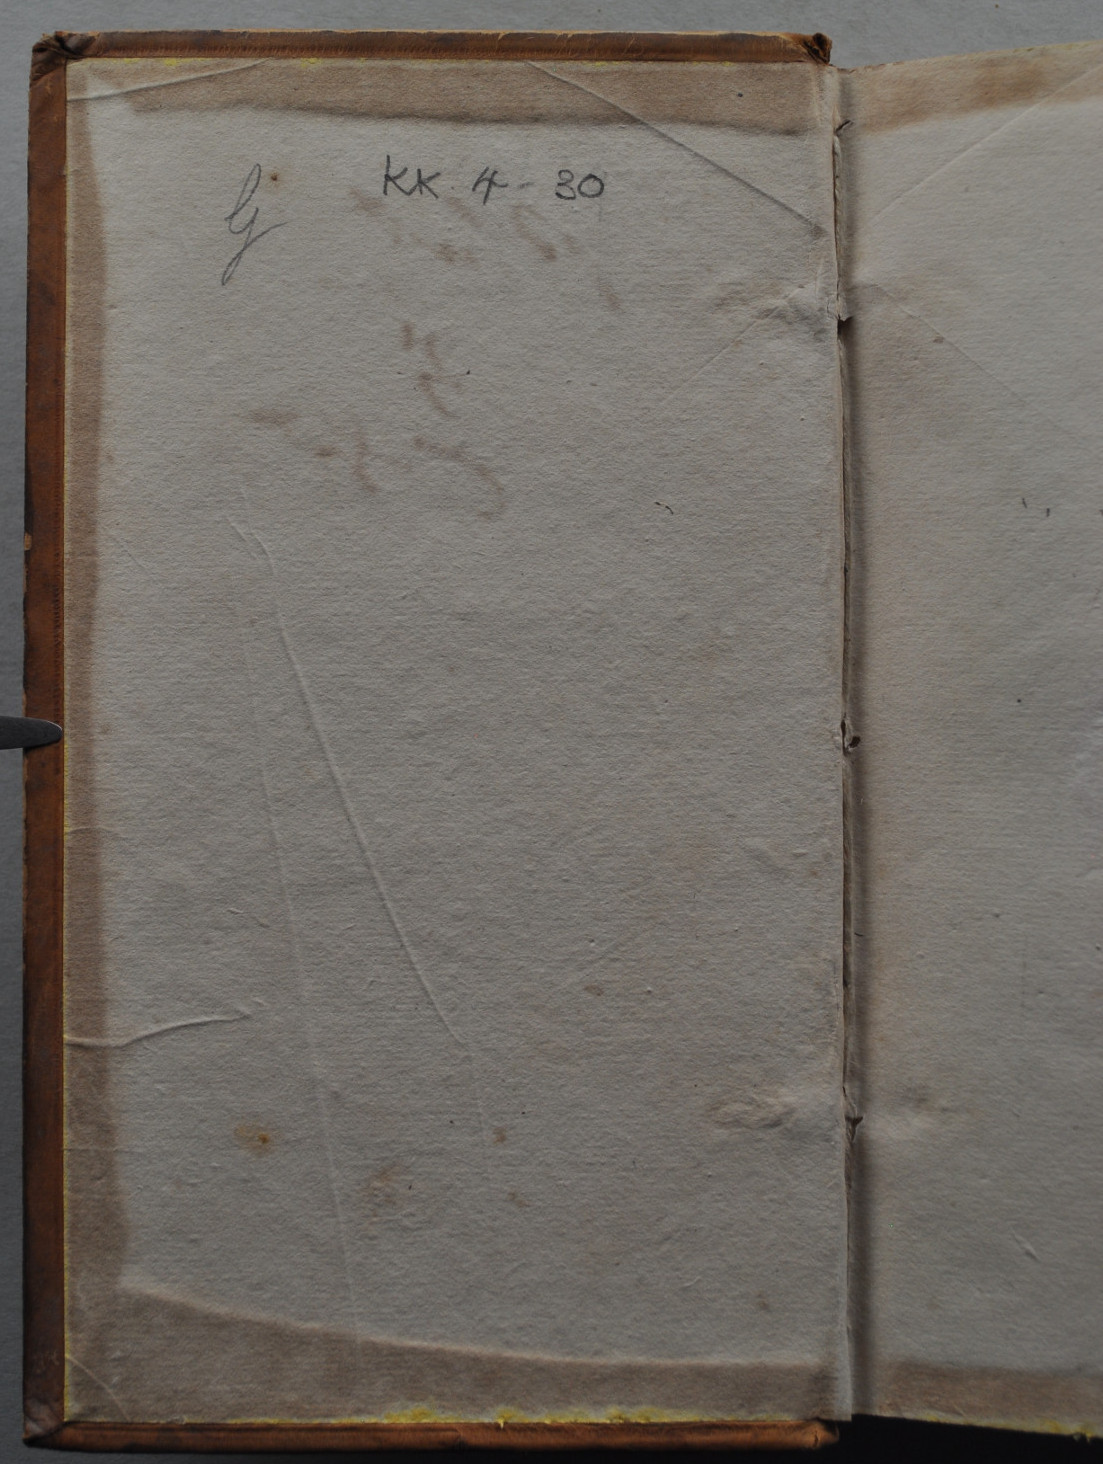 G KK. 4 - 30